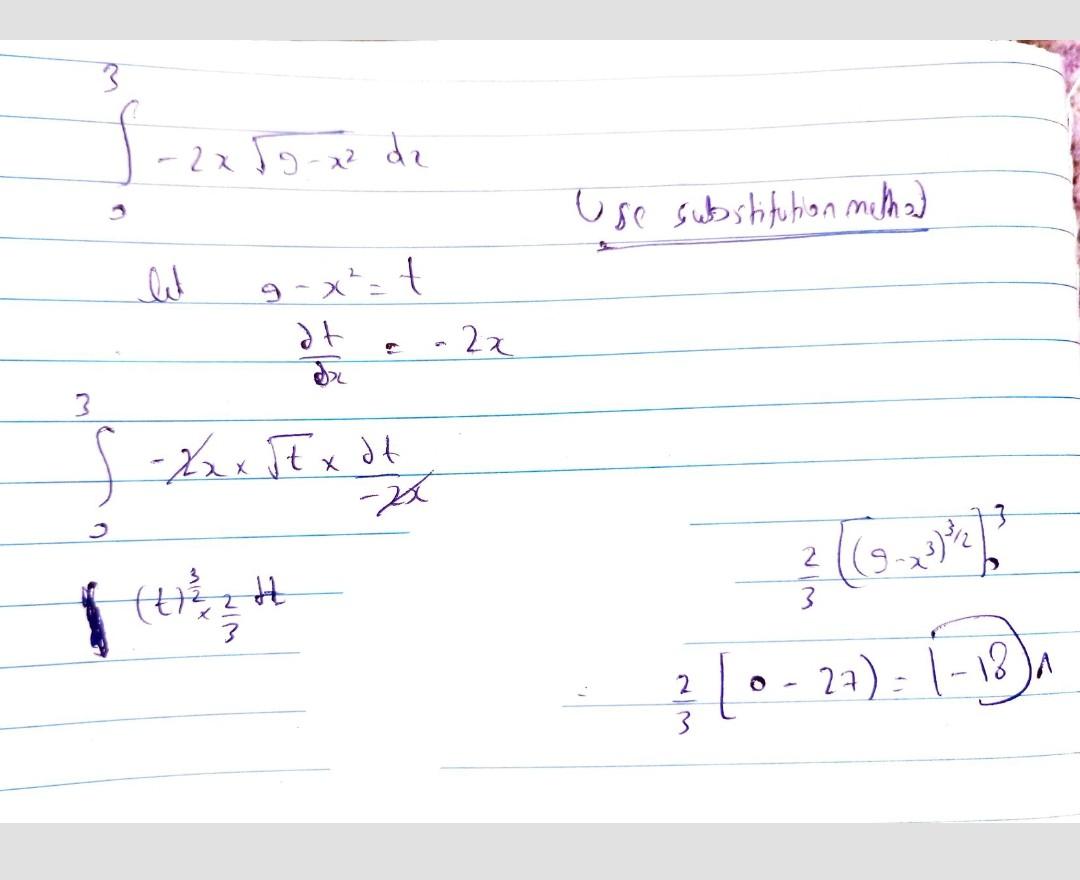 ∫₀³ -2x √9-x² dx
Use substitution method
let 9-x² = t
dt/dx = -2x
∫₀³ -2x × √t × dt/-2x
(t)^3/2 × 2/3 dt
2/3 [(9-x³)^3/2]₀³
= 2/3 [0 - 27) = (-18)